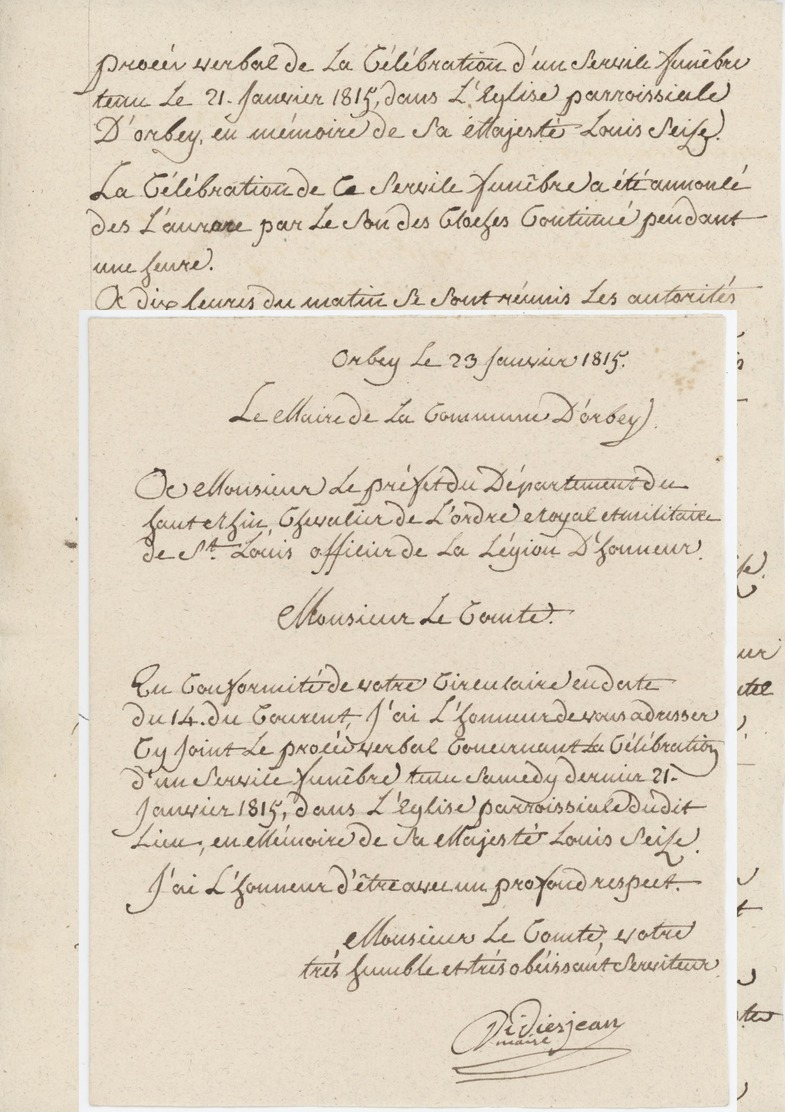 procès verbal de La Célébration d'un Service funêbre
tenu Le 21. Janvier 1815, dans L'Eglise parroissiale
D'orbey, en mémoire de Sa Majesté Louis Seize.
La Célébration de Ce Service funêbre a été annoncé
des L'aurore par Le Son des Cloches Continué pendant
une heure.
A dix heures du matin Se Sont réunis Les autorités
Orbey Le 23 Janvier 1815.
Le Maire de La Commune D'orbey
A Monsieur Le préfet du Département du
haut Rhin, Chevalier de L'ordre Royal et militaire
de St. Louis officier de La Légion D'honneur.
Monsieur Le Comte.
En Conformité de votre Circulaire en date
du 14. du Courent, J'ai L'honneur de vous adresser
Cy Joint Le procès verbal Concernant La Célébration
d'un Service funêbre tenu Samedy dernier 21.
Janvier 1815, dans L'Eglise parroissiale dudit
Lieu, en Mémoire de Sa Majesté Louis Seize.
J'ai L'honneur d'être avec un profond respect.
Monsieur Le Comte, votre
très humble et très obéissant Serviteur
Didierjean
maire